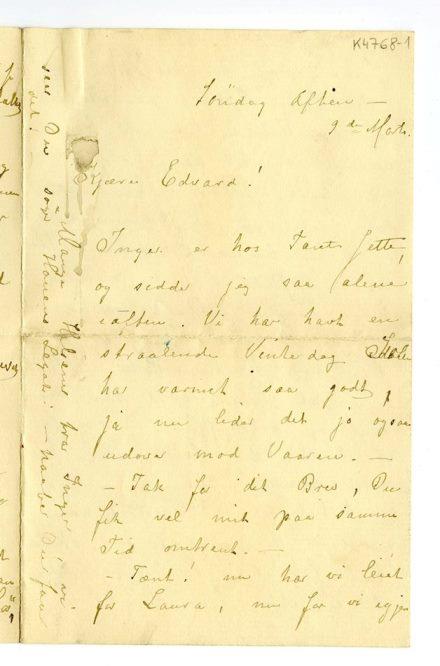 K4768-1
Söndag Aften —
9de Marts.
Kjære Edvard!
Inger er hos Tante Jette,
og sidder jeg saa alene
iaften. Vi har havt en
straalende Vinterdag Solen
har varmet saa godt,
ja nu lider det jo ogsaa
udover mod Vaaren. —
— Tak for dit Brev, Du
fik vel mit paa samme
Tid omtrent. —
— Tænk! nu har vi leiet
for Laura, nu faar vi igjen
Mange Hilsener fra Inger
ser Du søge Hauens Legat? — naar bør Du faa
det! —